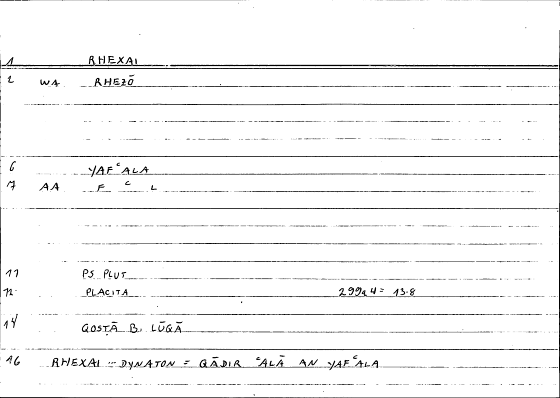 1 RHEXAI
2 WA RHEZŌ
6 YAFʿALA
7 AA F ʿ L
11 PS. PLUT.
12 PLACITA 299a4 = 13.8
14 QOSṬĀ B. LŪQĀ
16 RHEXAI -- DYNATON = QĀDIR ʿALĀ AN YAFʿALA